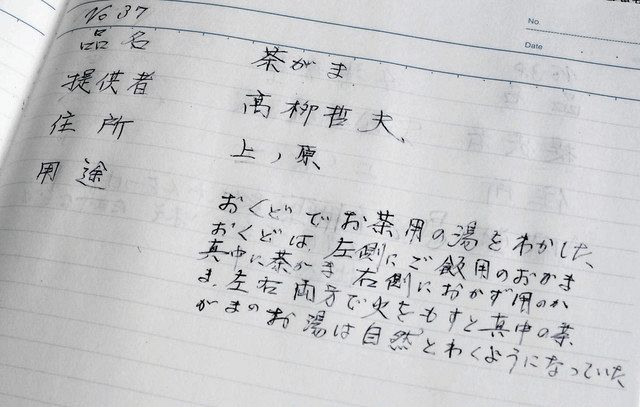 No
Date
No 37
品名 茶がま
提供者 高柳哲夫、
住所 上ノ原
用途
おくどでお茶用の湯をわかした、
おくどは、左側にご飯用のおがま
真中に茶がま 右側におかず用のか
ま、左右両方で火をもすと真中の茶
がまのお湯は自然とわくようになっていた